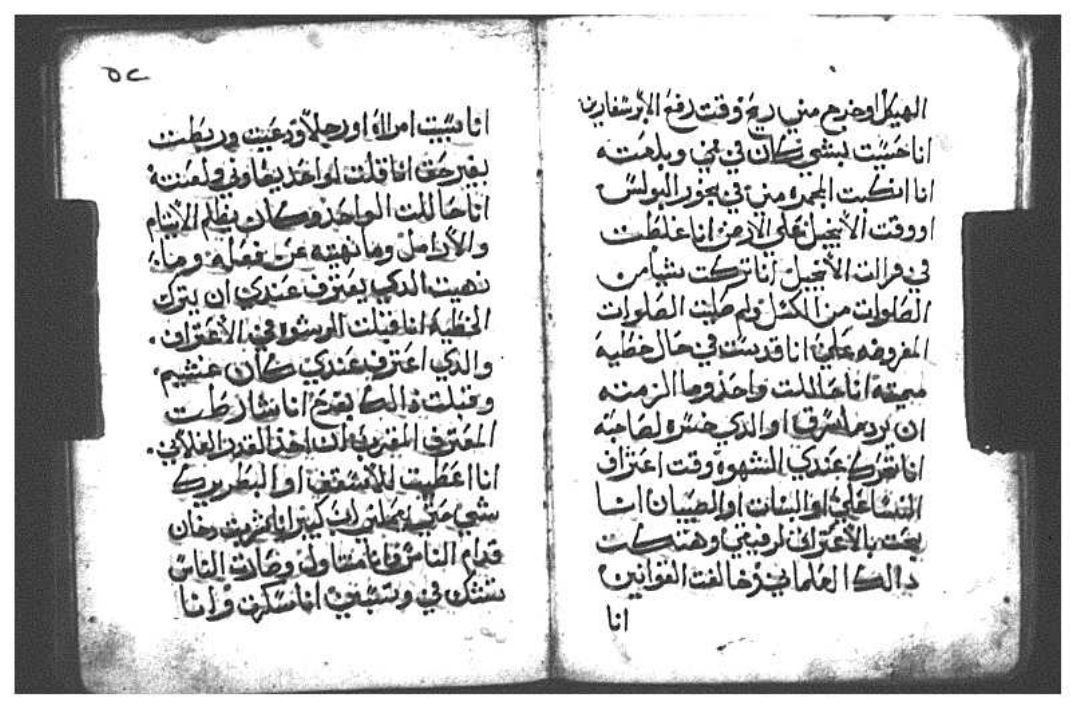 الهيكل او خرج مني ريح وقت رفع الابرسفارين
انا حسيت بشي كان في فمي وبلعته
انا انكبت المجمره مني في بخور البولس
او وقت الانجيل علي الارض انا غلطت
في قرات الانجيل انا تركت شيا من
الصلوات من الكسل ولم صليت الصلوات
المفروضه علي انا قدست في حال خطية
مميتة انا حاللت واحد وما الزمته
ان يرد ما سرقه او الذي خسره لصاحبه
انا تحرك عندي الشهوة وقت اعتراف
النسا علي او البنات او الصبيان انا
بحت بالاعتراف لرفيقي وهتكت
دالك العلماني وخالفت القوانين
انا
٥٢
انا سبيت امراة او رجلا ودعيت وربطت
بغير حق انا قلت لواحد يعاوني ولعنته
انا حاللت الواحد وكان يظلم الايتام
والارامل وما نهيته عن فعله وما
نهيت الدي يعترف عندي ان يترك
الخطية انا قبلت الرشوة في الاعتراف
والذي اعترف عندي كان غشيم
وقبلت ذالك بفرح انا شارطت
المعترف المقر به ان اخذ القدر الفلاني
انا اعطيت للاسقف او البطريرك
شي حتي كبير انا شربت دخان
قدام الناس وانا متناول وصارت الناس
تشك في وتسبني انا سكرت وانا